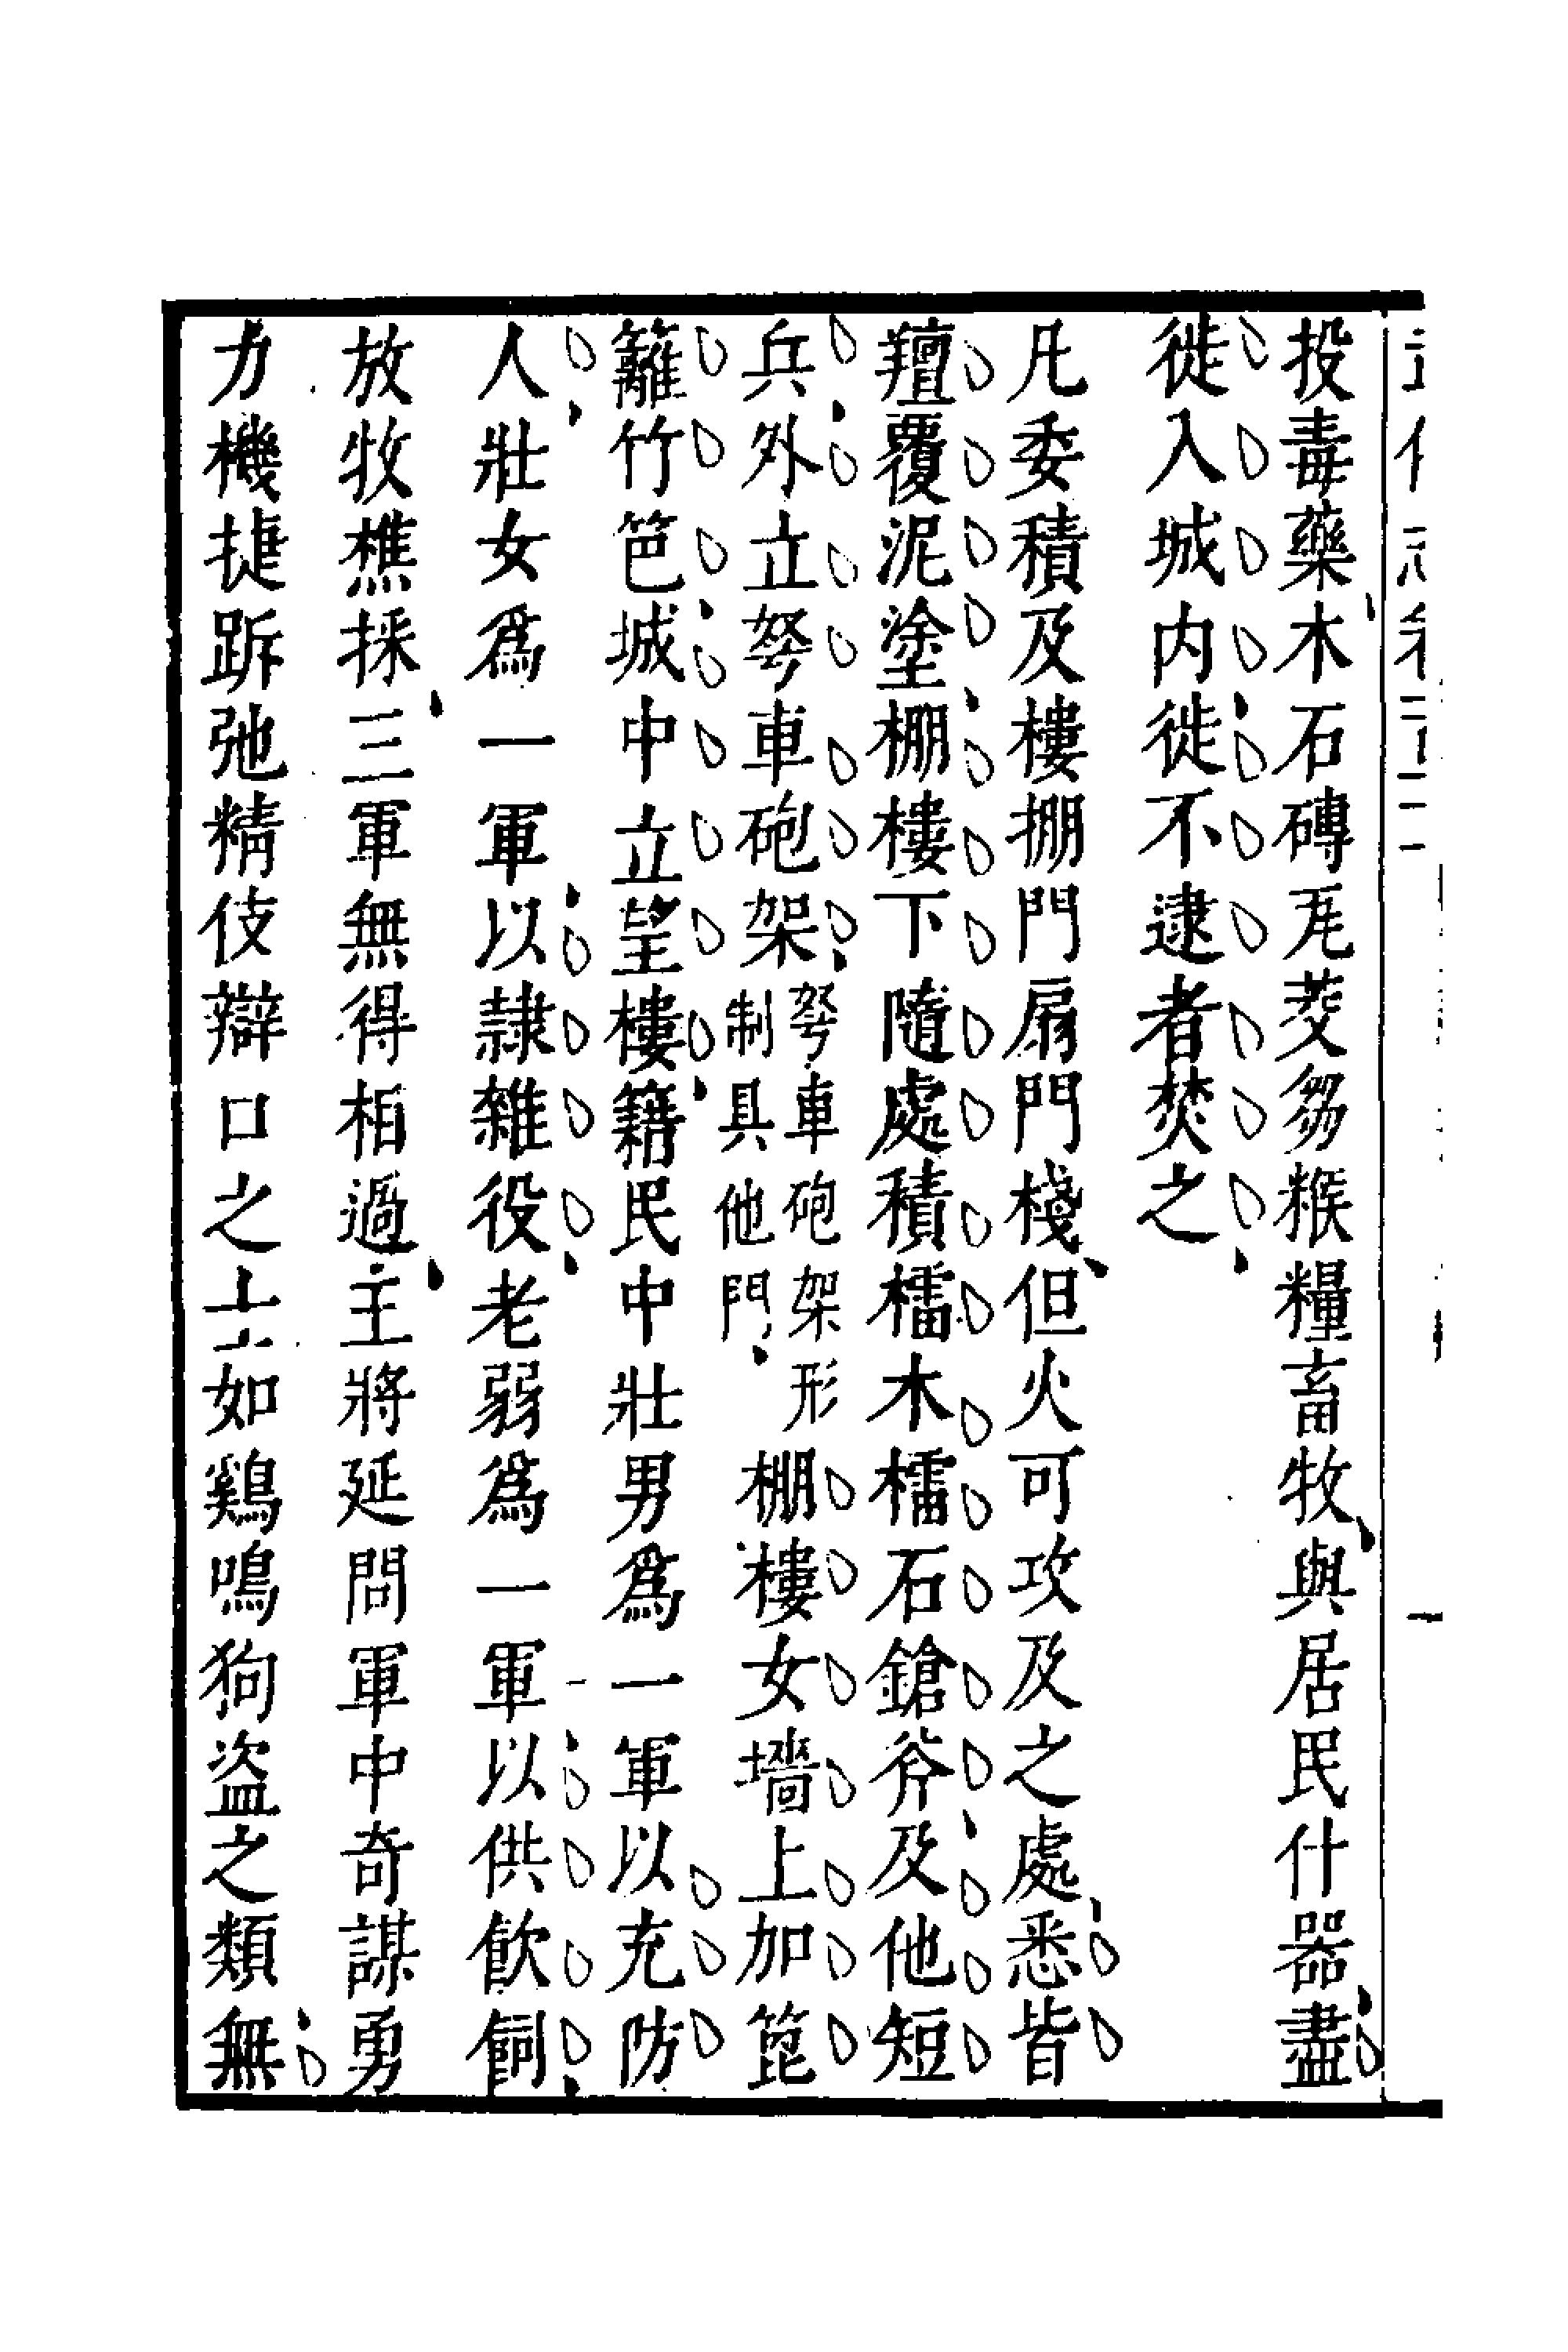 投毒藥木石磚瓦茭芻糇糧畜牧與居民什器盡
徙入城内徙不逮者焚之
凡委積及樓掤門扇門棧但火可攻及之處悉皆
氊覆泥塗棚樓下隨處積檑木檑石鎗斧及他短
兵外立弩車砲架弩車砲架形制具他門棚樓女墻上加箆
籬竹笆城中立望樓籍民中壯男爲一軍以充防
人壯女爲一軍以隷雜役老弱爲一軍以供飲飼
放牧樵採三軍無得相過主將延問軍中奇謀勇
力機捷跅弛精伎辯口之士如鷄鳴狗盜之類無